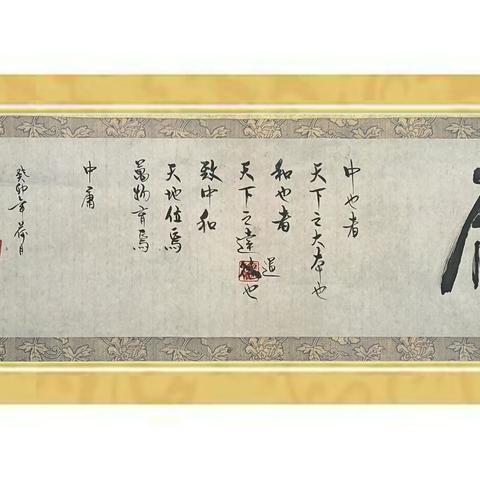 中也者
天下之大本也
和也者
天下之達道也
致中和
天地位焉
萬物育焉
中庸
癸卯年荷月